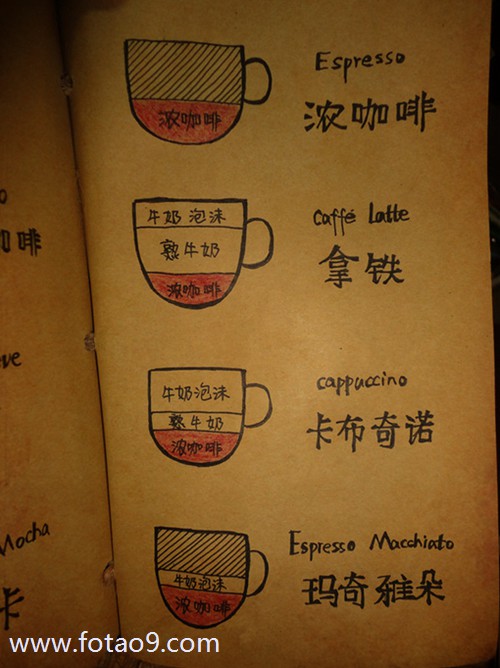 Espresso
浓咖啡
浓咖啡
Caffé Latte
拿铁
牛奶泡沫
熟牛奶
浓咖啡
cappuccino
卡布奇诺
牛奶泡沫
熟牛奶
浓咖啡
Espresso Macchiato
玛奇雅朵
牛奶泡沫
浓咖啡
啡
Mocha
卡
www.fotao9.com